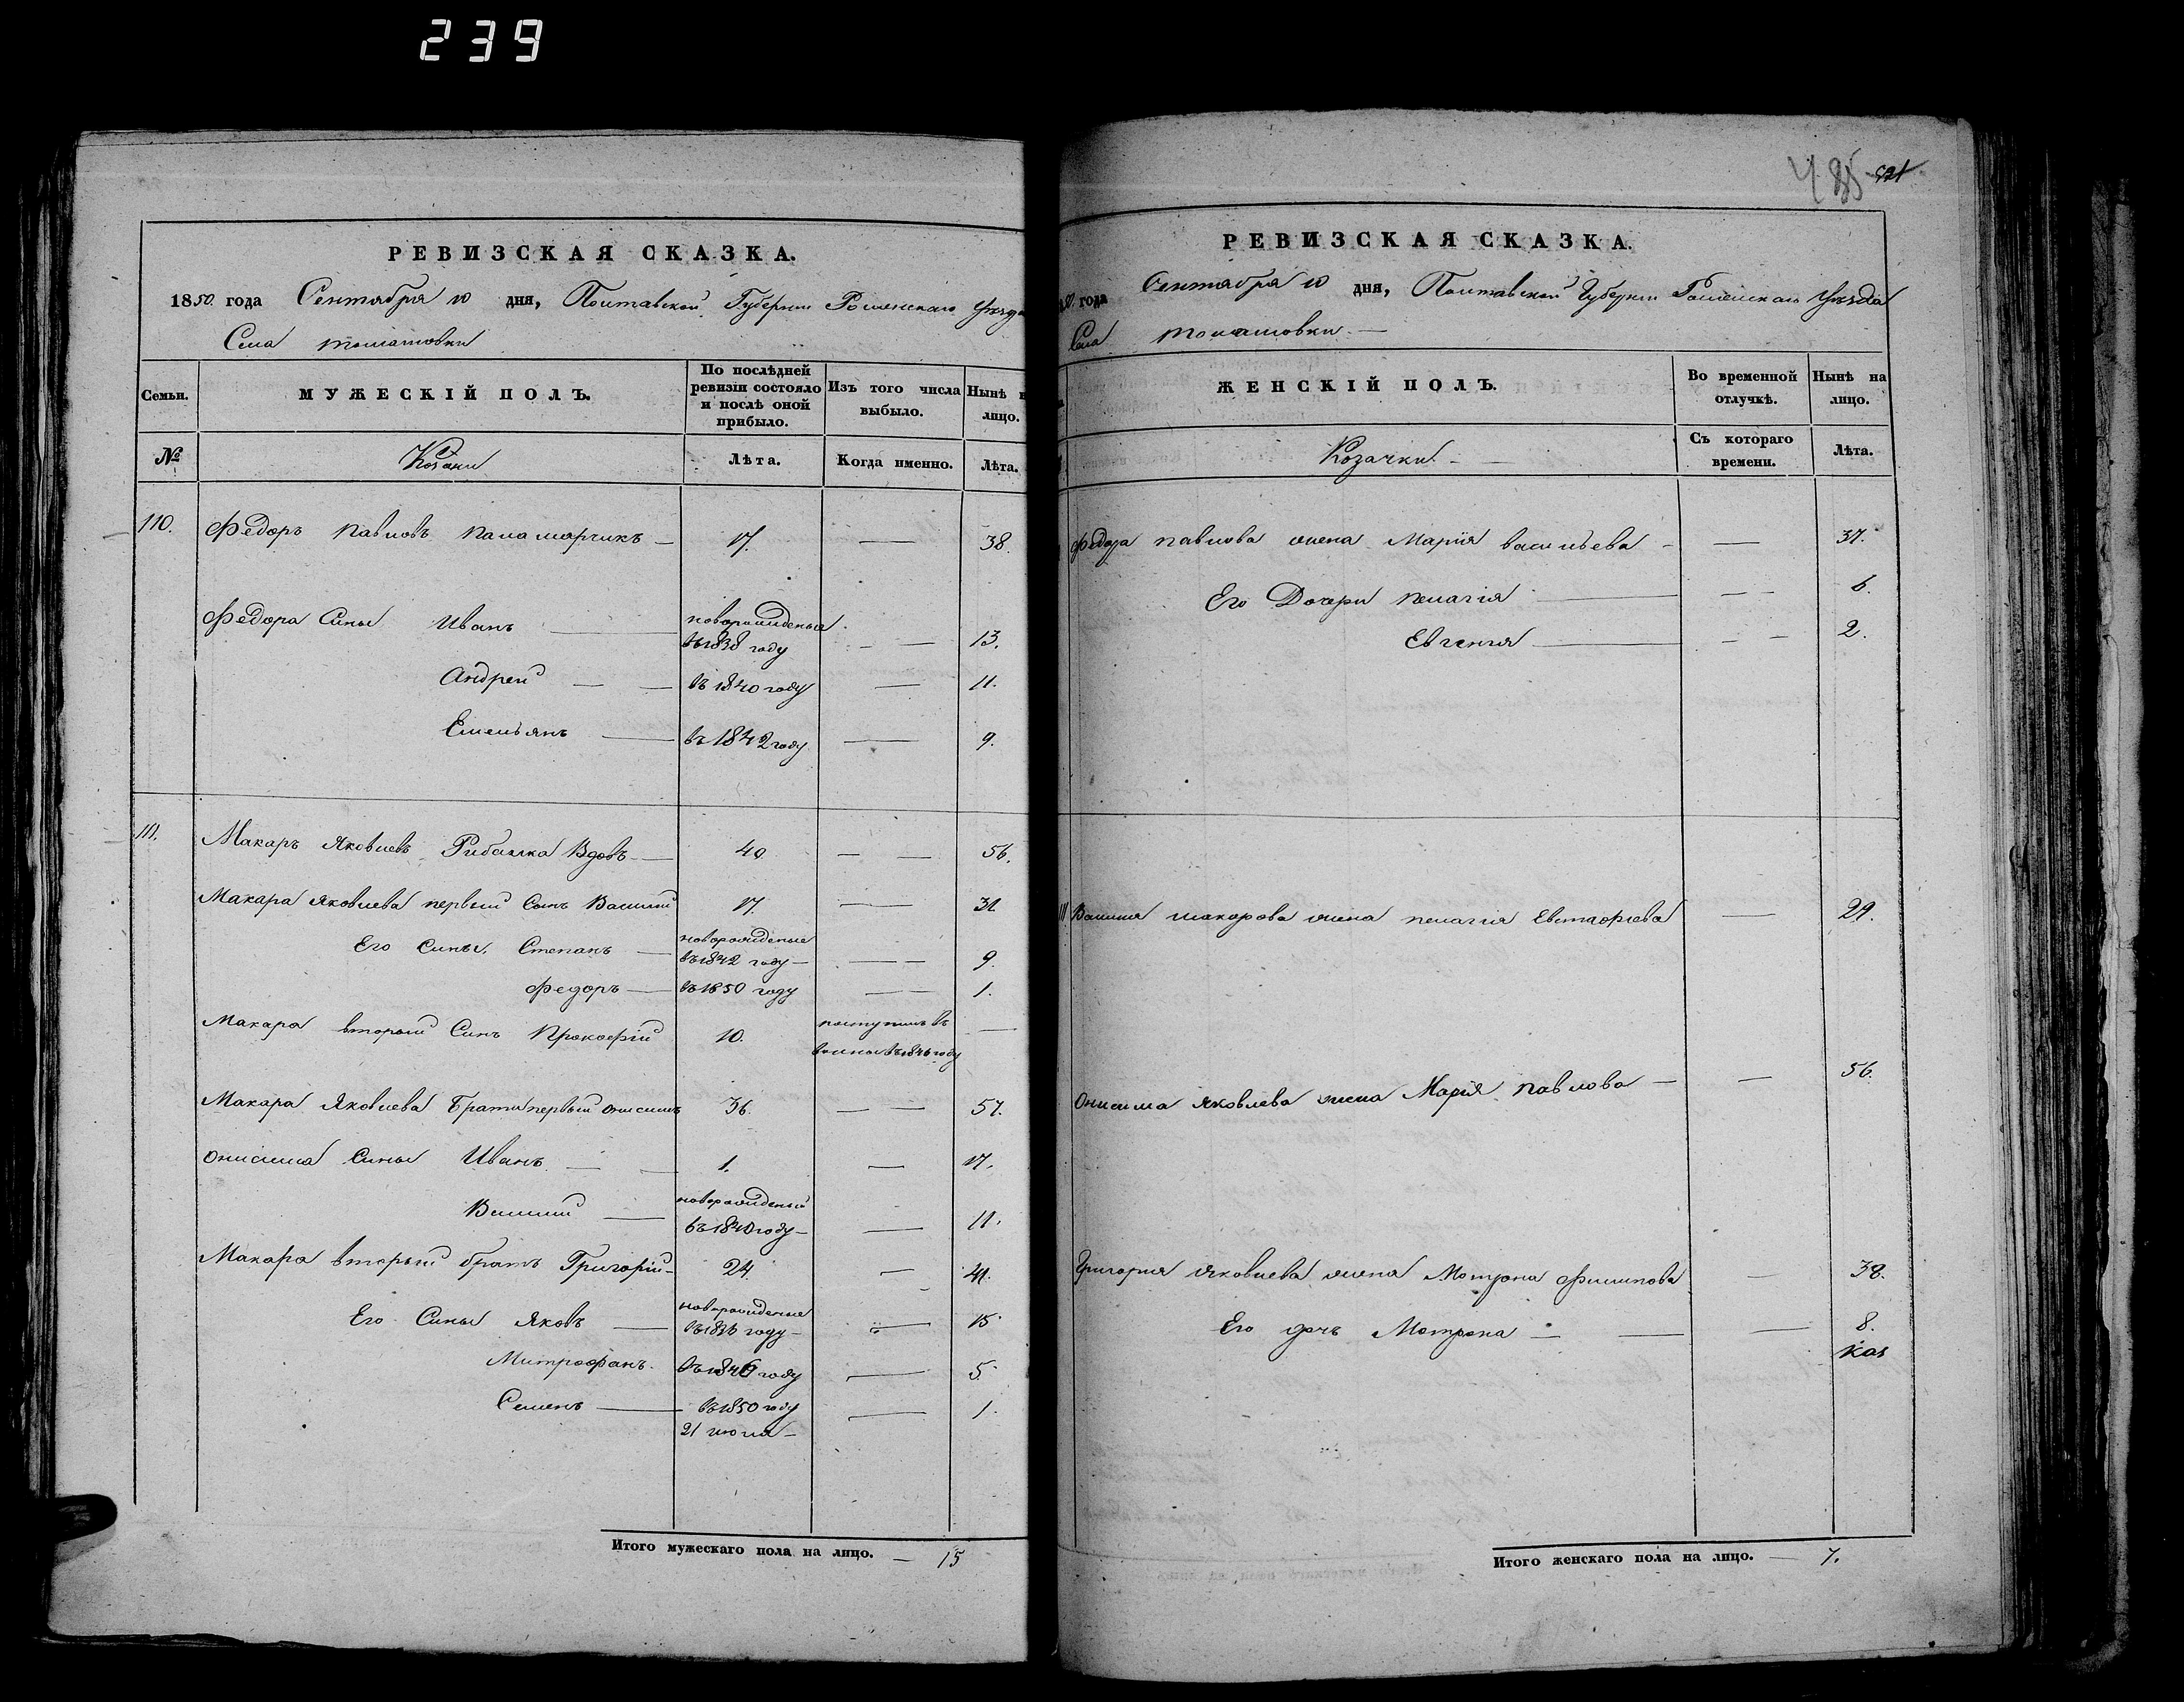 239
РЕВИЗСКАЯ СКАЗКА.
1850 года Сентября 10 дня, Полтавской Губернии Роменскаго Уезда
Села Томашовки
Семьи. МУЖЕСКІЙ ПОЛЪ. По послѣдней ревизіи состояло и послѣ оной прибыло. Изъ того числа выбыло. Нынѣ н лицо.
№ Козаки Лѣта. Когда именно. Лѣта.
110. Федоръ Павловъ Паламарчикъ — 17. — 38.
Федора Сины Иванъ — новорожденые въ 1838 году — 13.
Андрей — въ 1840 году — 11.
Емельянъ — въ 1842 году — 9.
111. Макаръ Яковлевъ Рибалка Вдовъ — 40. — 56.
Макара Яковлева первый Сынъ Василий 17. — 31
Его Сины, Степанъ — новорожденые въ 1842 году — 9.
Федоръ — въ 1850 году — 1.
Макара вторый Синъ Прокофій 10. поступилъ въ 1846 году —
Макара Яковлева Братъ первый Онисимъ 36. — 57.
Онисима Сины Иванъ — 1. — 17.
Василий — новорожденый въ 1840 году — 11.
Макара вторый братъ Григорій — 24. — 41.
Его Сины Яковъ — новорожденые въ 1836 году — 15
Митрофанъ. въ 1846 году — 5.
Семенъ — въ 1850 году 21 июля — — 1.
Итого мужескаго пола на лицо. — 15
485 521
РЕВИЗСКАЯ СКАЗКА.
года Сентября 10 дня, Полтавской Губернии Роменскаго Уѣзда
Села Томашовки. —
ЖЕНСКІЙ ПОЛЪ. Во временной отлучкѣ. Нынѣ на лицо.
Козачки — Съ котораго времени. Лѣта.
Федора Павлова жена Марія Васильева — — 37.
Его Дочери Пелагія — — 6.
Евгения — — 2.
111 Василия Макарова жена Пелагія Евстафіева — 29.
Онисима Яковлева жена Марія Павлова — — 56.
Григория Яковлева жена Мотрона Филипова — 38.
Его дочъ Мотрона — — 8.
Итого женскаго пола на лицо. — 7.